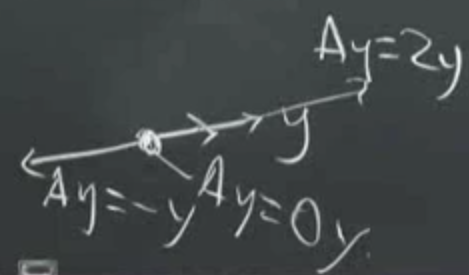 Ay=2y
y
Ay=-y
Ay=0y